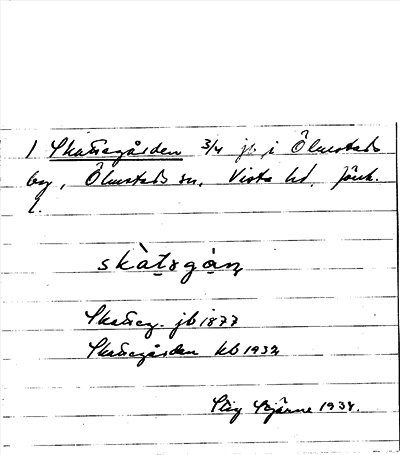 1 Skattegården 3/4 jb i Ölmstads
by, Ölmstads sn, Vista hd, Jönk.
l.
skàtǝgàṇ
Skatteg. jb 1877
Skattegården kb 1932
Stig Bjärne 1938.